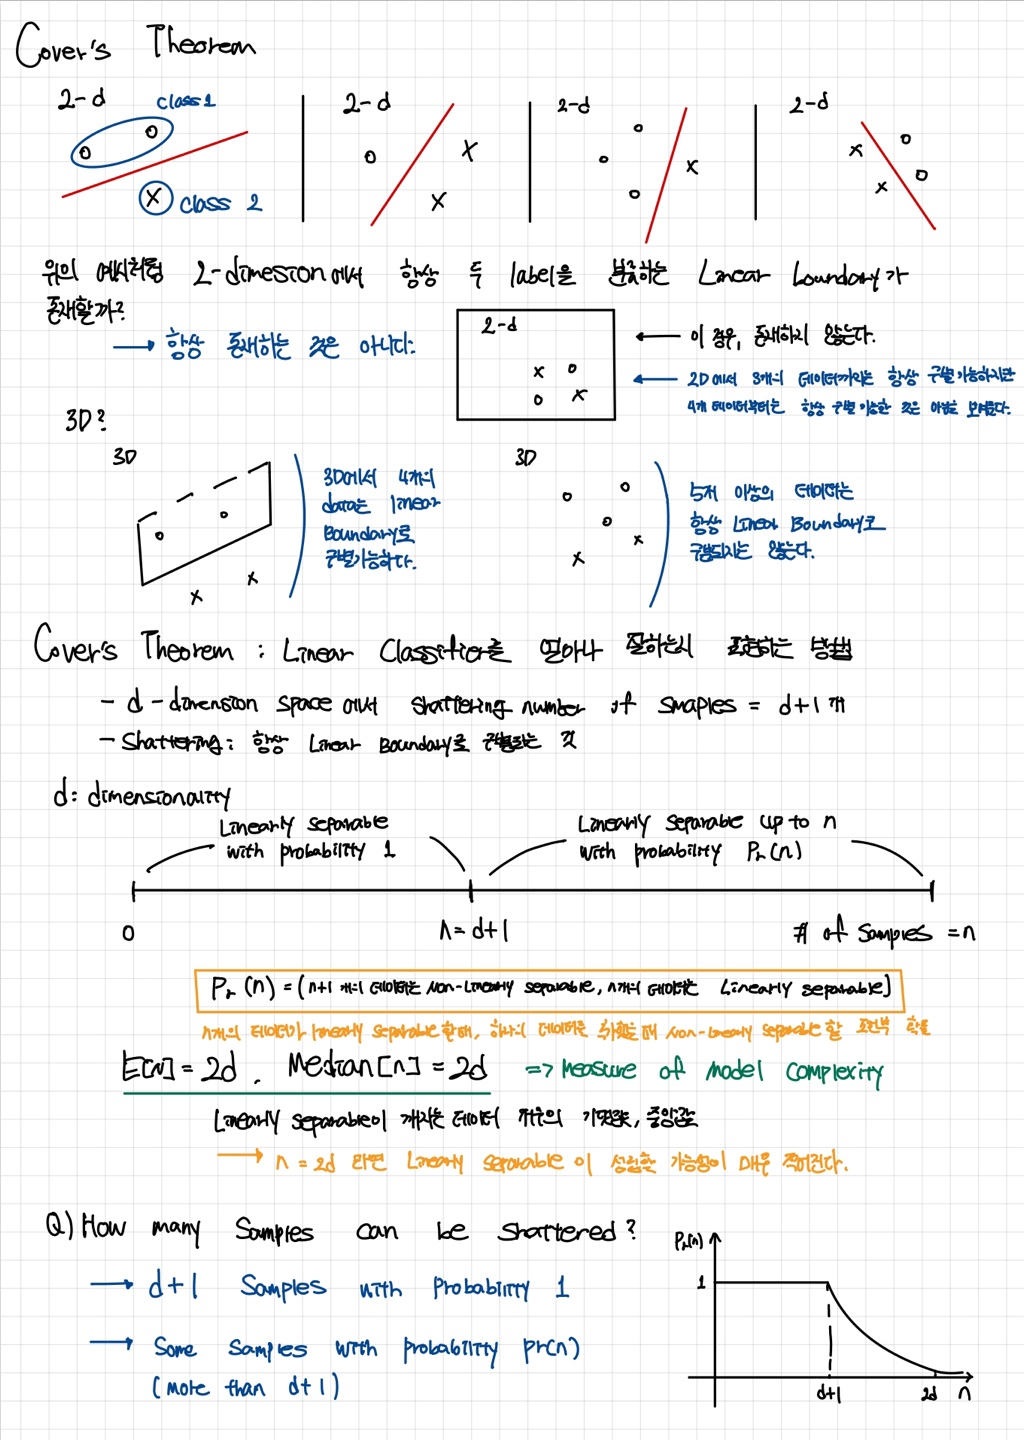 Cover's Theorem
2-d
class 1
class 2
2-d
2-d
2-d
위의 예시처럼 2-dimesion에서 항상 두 label을 분류하는 Linear boundary가
존재할까?
→ 항상 존재하는 것은 아니다.
2-d
← 이 경우, 존재하지 않는다.
← 2D에서 3개의 데이터까지는 항상 구별가능하지만
4개 데이터부터는 항상 구별 가능한 것은 아님을 보여준다.
3D?
3D
3D에서 4개의
data는 linear
Boundary로
구별가능하다.
3D
5개 이상의 데이터는
항상 Linear Boundary로
구별되지는 않는다.
Cover's Theorem : Linear Classifier를 얼마나 잘하는지 표현하는 방법
- d-dimension space에서 shattering number of smaples = d+1개
- Shattering: 항상 Linear Boundary로 구별되는 것
d: dimensionality
Linearly separable
with probability 1
Linearly separable up to n
with probability Pr(n)
0
n=d+1
# of samples = n
Pr(n) = (n+1개의 데이터는 Non-Linearly separable, n개의 데이터는 Linearly separable)
n개의 데이터가 linearly separable할 때, 하나의 데이터를 추가했을 때 Non-linearly separable할 조건부 확률
E[n] = 2d, Median[n] = 2d => Measure of model complexity
Linearly separable이 깨지는 데이터 개수의 기댓값, 중앙값
→ n = 2d 라면 Linearly separable이 성립할 가능성이 매우 적어진다.
Q) How many Samples can be shattered?
→ d+1 Samples with Probability 1
→ Some samples with probability pr(n)
(more than d+1)
Pr(n)
1
d+1
2d
n